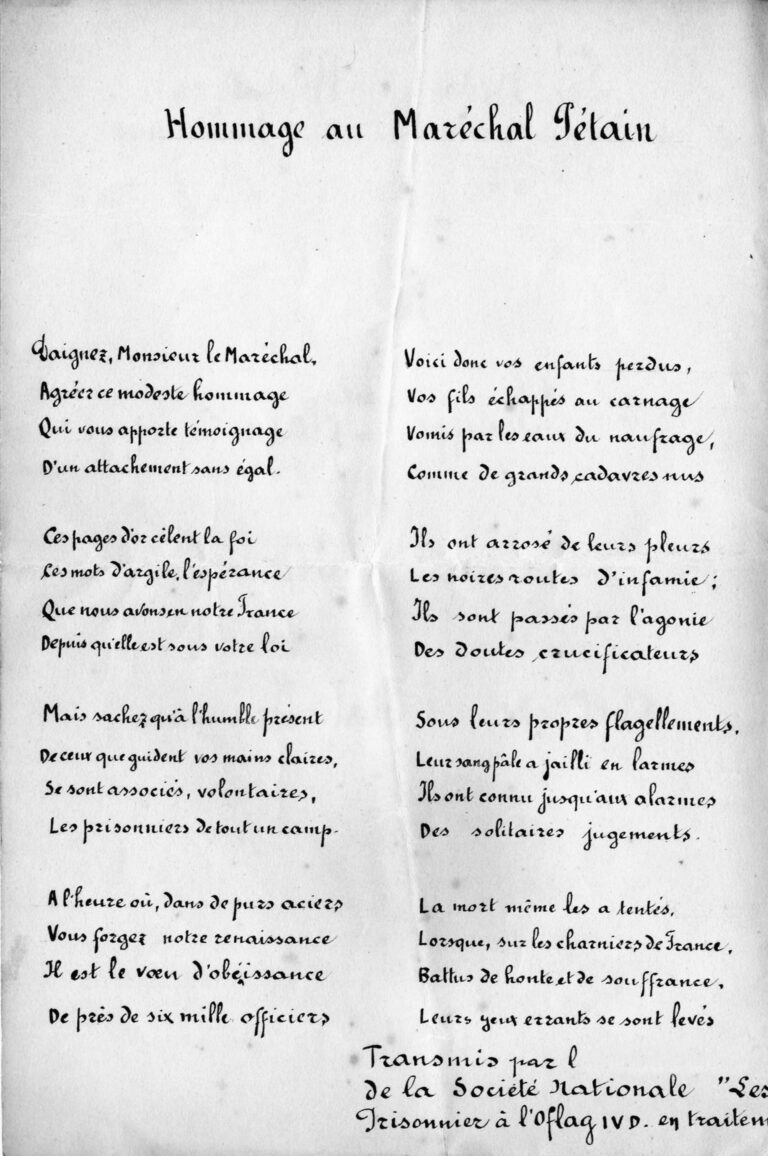 Hommage au Maréchal Pétain
Daignez, Monsieur le Maréchal,
Agréer ce modeste hommage
Qui vous apporte témoignage
D'un attachement sans égal.
Ces pages d'or cèlent la foi
Ces mots d'argile, l'espérance
Que nous avons en notre France
Depuis qu'elle est sous votre loi
Mais sachez qu'à l'humble présent
De ceux que guident vos mains claires,
Se sont associés, volontaires,
Les prisonniers de tout un camp.
A l'heure où, dans de purs aciers
Vous forgez notre renaissance
Il est le vœu d'obéissance
De près de six mille officiers
Voici donc vos enfants perdus,
Vos fils échappés au carnage
Vomis par les eaux du naufrage,
Comme de grands cadavres nus
Ils ont arrosé de leurs pleurs
Les noires routes d'infamie ;
Ils sont passés par l'agonie
Des doutes crucificateurs
Sous leurs propres flagellements,
Leur sang pâle a jailli en larmes
Ils ont connu jusqu'aux alarmes
Des solitaires jugements.
La mort même les a tentés,
Lorsque, sur les charniers de France,
Battus de honte et de souffrance,
Leurs yeux errants se sont levés
Transmis par l
de la Société Nationale "Les
Prisonnier à l'Oflag IV D. en traitem